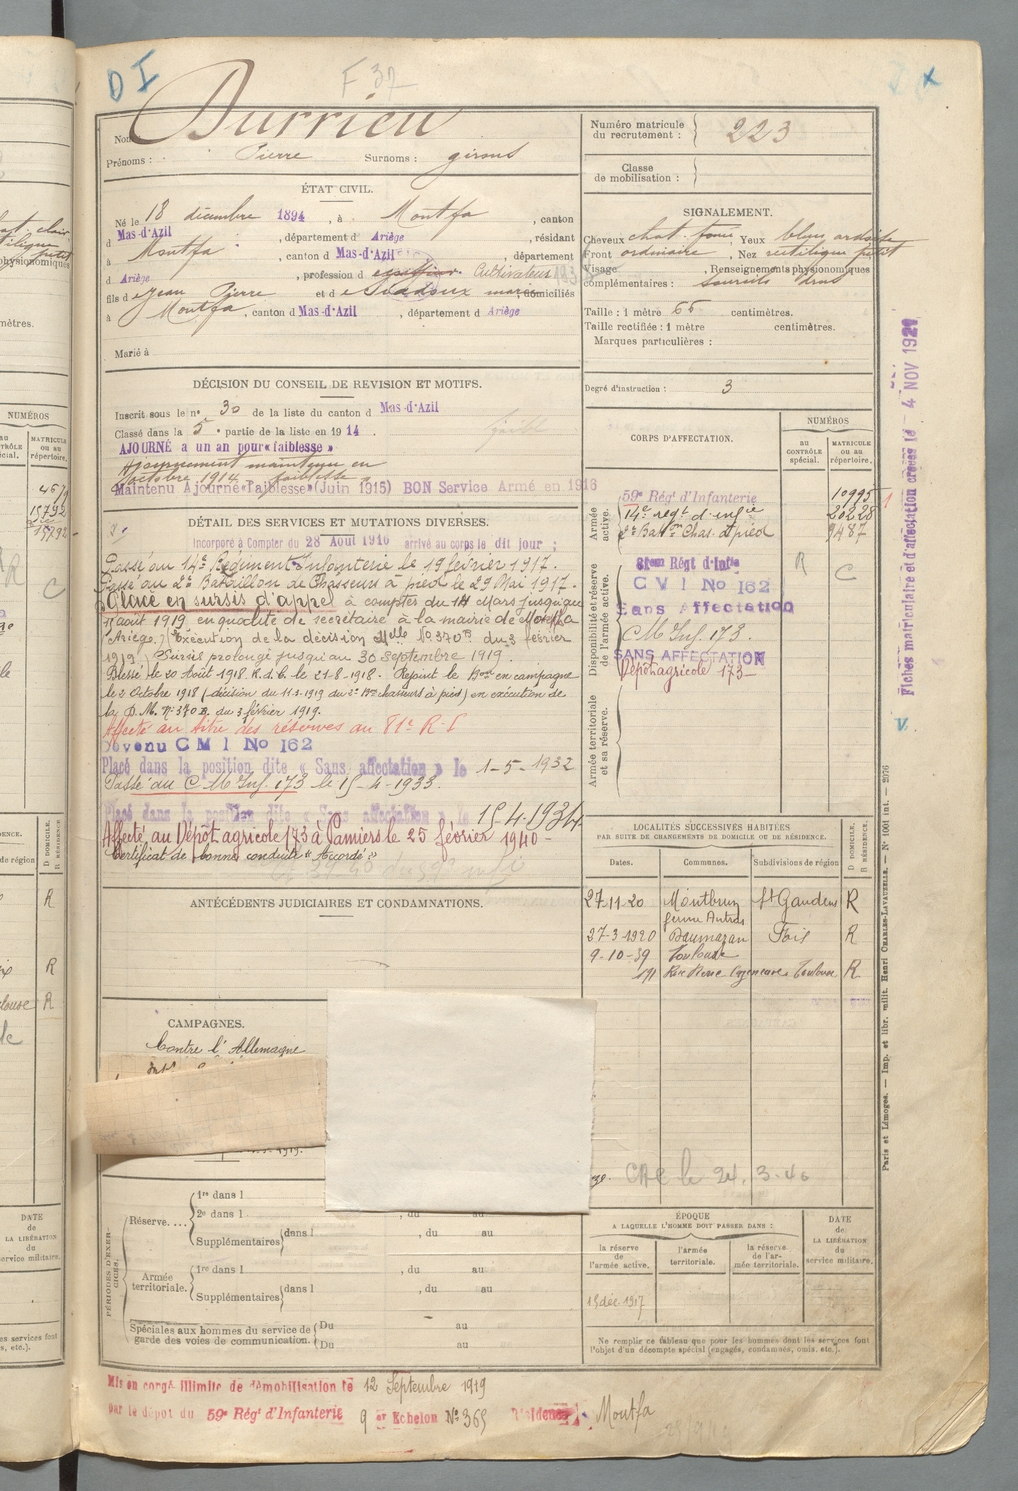 D I
F 37
Nom : Durrieu
Prénoms : Pierre Surnoms : girons
Numéro matricule du recrutement : 223
Classe de mobilisation :
ÉTAT CIVIL.
Né le 18 décembre 1894, à Montfa, canton
d Mas-d'Azil, département d Ariège, résidant
à Montfa, canton d Mas-d'Azil, département
d Ariège, profession de Cultivateur
fils de Jean Pierre et de Suadoux marie, domiciliés
à Montfa, canton d Mas-d'Azil, département d Ariège
Marié à
SIGNALEMENT.
Cheveux chat. foncé, Yeux bleu ardoise
Front ordinaire, Nez rectiligne petit
Visage , Renseignements physionomiques
complémentaires : Sourcils drus
Taille : 1 mètre 65 centimètres.
Taille rectifiée : 1 mètre centimètres.
Marques particulières :
Degré d'instruction : 3
DÉCISION DU CONSEIL DE REVISION ET MOTIFS.
Inscrit sous le n° 30 de la liste du canton d Mas-d'Azil
Classé dans la 5e partie de la liste en 1914.
AJOURNÉ à un an pour « faiblesse »
Ajournement maintenu en
octobre 1914 faiblesse
Maintenu Ajourné « Faiblesse » (Juin 1915) BON Service Armé en 1916
DÉTAIL DES SERVICES ET MUTATIONS DIVERSES.
Incorporé à Compter du 28 Aout 1916 arrivé au corps le dit jour ;
Passé au 14e Régiment Infanterie le 19 février 1917.
Passé au 2e Bataillon de Chasseurs à pied le 29 Mai 1917.
Placé en sursis d'appel à compter du 14 Mars jusqu'au
15 août 1919, en qualité de secrétaire à la mairie de Montfa
(Ariège.) (Exécution de la décision Mlle No 370 du 3 février
1919.) Sursis prolongé jusqu'au 30 septembre 1919.
Blessé le 20 Août 1918. R.d.C. le 21-8-1918. Rejoint le Bon en campagne
le 2 Octobre 1918 (décision du 11.3.1919 du 2e Bon chasseurs à pied) en exécution de
la D.M. No 370 du 3 février 1919.
Affecté au titre des réserves au 81e R-I
Devenu C M I No 162
Placé dans la position dite « Sans affectation » le 1-5-1932
Passé au C M Inf. 173 le 15-4-1933.
Placé dans la position dite « Sans affectation » le 15.4.1934
Affecté au Dépôt agricole 173 à Pamiers le 25 février 1940
Certificat de bonne conduite « Accordé »
CORPS D'AFFECTATION.
NUMÉROS
au CONTRÔLE spécial.
MATRICULE ou au répertoire.
Armée active.
59e Régt d'Infanterie 10995
14e régt d'infie 20228
2e Baton Chas. à pied 9487
Disponibilité et réserve de l'armée active.
81ème Régt d'Infie R C
C M I No 162
Sans Affectation
C M Inf. 173.
SANS AFFECTATION
Dépôt agricole 173
Armée territoriale et sa réserve.
LOCALITÉS SUCCESSIVES HABITÉES
PAR SUITE DE CHANGEMENTS DE DOMICILE OU DE RÉSIDENCE.
Dates. Communes. Subdivisions de région D DOMICILE. R RÉSIDENCE
27.11.20 Montbrun St Gaudens R
ferme Autras
27-3-1920 Daumazan Foix R
9-10-39 Toulouse
191 Rue Pierre Cazeneuve Toulouse R
ANTÉCÉDENTS JUDICIAIRES ET CONDAMNATIONS.
CAMPAGNES.
Contre l'Allemagne
CAC le 24.3-46
PÉRIODES D'EXERCICES.
Réserve....
1re dans l
2e dans l , du au
Supplémentaires dans l , du au
Armée territoriale.
1re dans l , du au
Supplémentaires dans l , du au
Spéciales aux hommes du service de garde des voies de communication.
Du au
Du au
ÉPOQUE
A LAQUELLE L'HOMME DOIT PASSER DANS :
la réserve de l'armée active.
l'armée territoriale.
la réserve de l'armée territoriale.
DATE de LA LIBÉRATION du service militaire.
15 déc. 1917
Ne remplir ce tableau que pour les hommes dont les services font
l'objet d'un décompte spécial (engagés, condamnés, omis, etc.).
Mis en congé illimité de démobilisation le 12 Septembre 1919
par le dépôt du 59e Régt d'Infanterie 9 er Echelon No 365 Résidence Montfa
Fiches matriculaire et d'affectation créées le 4 NOV 1921
Paris et Limoges. — Imp. et libr. milit. Henri CHARLES-LAVAUZELLE. — N° 1001 int. — 2076